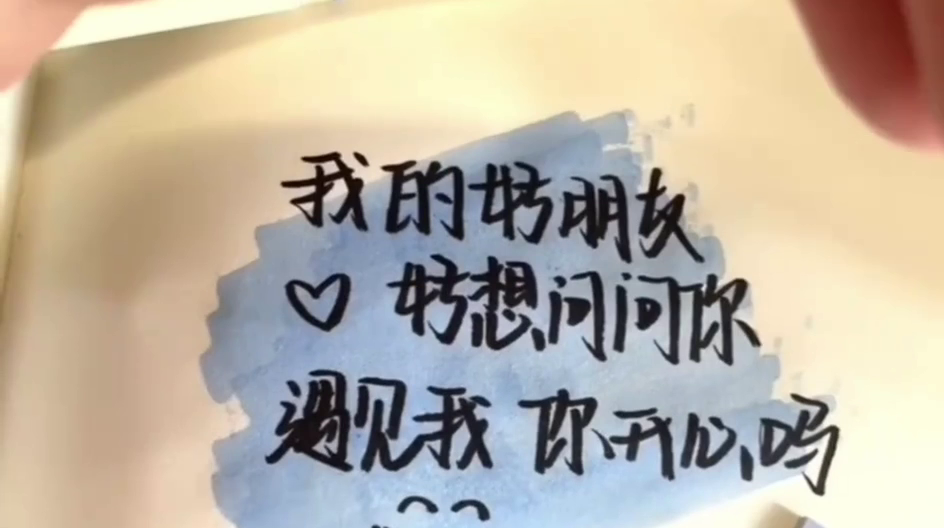 我的好朋友
♡ 好想问问你
遇见我 你开心吗